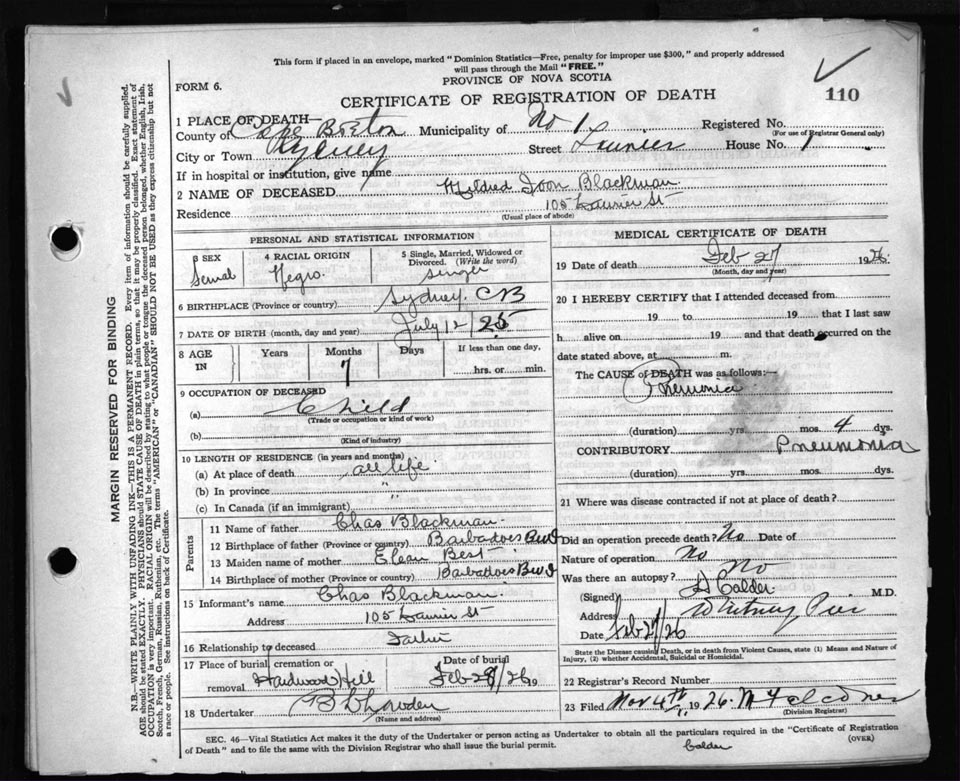 This form if placed in an envelope, marked "Dominion Statistics—Free, penalty for improper use $300," and properly addressed
will pass through the Mail "FREE."
PROVINCE OF NOVA SCOTIA
FORM 6.
CERTIFICATE OF REGISTRATION OF DEATH
110
1 PLACE OF DEATH—
County of Cape Breton Municipality of No 1 Registered No.
(For use of Registrar General only)
City or Town Sydney Street Laurier House No. 1
If in hospital or institution, give name
2 NAME OF DECEASED Mildred Joan Blackman
Residence 105 Laurier St
(Usual place of abode)
PERSONAL AND STATISTICAL INFORMATION
3 SEX 4 RACIAL ORIGIN 5 Single, Married, Widowed or Divorced. (Write the word)
Femal Negro. single
6 BIRTHPLACE (Province or country) Sydney. CB
7 DATE OF BIRTH (month, day and year) July 12 / 25
8 AGE IN Years Months Days If less than one day,
7 hrs. or min.
9 OCCUPATION OF DECEASED
(a) Child
(Trade or occupation or kind of work)
(b)
(Kind of industry)
10 LENGTH OF RESIDENCE (in years and months)
(a) At place of death all life
(b) In province "
(c) In Canada (if an immigrant) "
Parents
11 Name of father Chas Blackman.
12 Birthplace of father (Province or country) Barbadoes BWI
13 Maiden name of mother Best
14 Birthplace of mother (Province or country) Barbadoes BWI
15 Informant's name Chas Blackman.
Address 105 Laurier St
16 Relationship to deceased Father
17 Place of burial, cremation or removal Hardwood Hill Date of burial Feb 28/26 19
18 Undertaker
(Name and address)
MEDICAL CERTIFICATE OF DEATH
19 Date of death Feb 27 1926.
(Month, day and year)
20 I HEREBY CERTIFY that I attended deceased from
19 to 19 that I last saw
h alive on 19 and that death occurred on
date stated above, at m.
The CAUSE of DEATH was as follows:—
Pnemonia
(duration) yrs. mos. 4 dys.
CONTRIBUTORY Pneumonia
(duration) yrs. mos. dys.
21 Where was disease contracted if not at place of death?
Did an operation precede death? No Date of
Nature of operation No
Was there an autopsy? No
(Signed) Calder M.D.
Address Whitney Pier
Date Feb 27/26
State the Disease causing Death, or in death from Violent Causes, state (1) Means and Nature of
Injury, (2) whether Accidental, Suicidal or Homicidal.
22 Registrar's Record Number
23 Filed Nov 4th, 1926.
(Division Registrar)
SEC. 46—Vital Statistics Act makes it the duty of the Undertaker or person acting as Undertaker to obtain all the particulars required in the "Certificate of Registration
of Death" and to file the same with the Division Registrar who shall issue the burial permit.
(OVER)
Calder
MARGIN RESERVED FOR BINDING
N.B.—WRITE PLAINLY WITH UNFADING INK—THIS IS A PERMANENT RECORD. Every item of information should be carefully supplied.
AGE should be stated EXACTLY. PHYSICIANS should STATE CAUSE OF DEATH in plain terms, so that it may be properly classified. Exact statement of
OCCUPATION is very important. RACIAL ORIGIN will be described by stating to what people or tongue the deceased person belonged, whether English, Irish,
Scotch, French, German, Russian, Ruthenian, etc. The terms "AMERICAN" or "CANADIAN" SHOULD NOT BE USED as they express citizenship but not
a race or people. See instructions on back of Certificate.